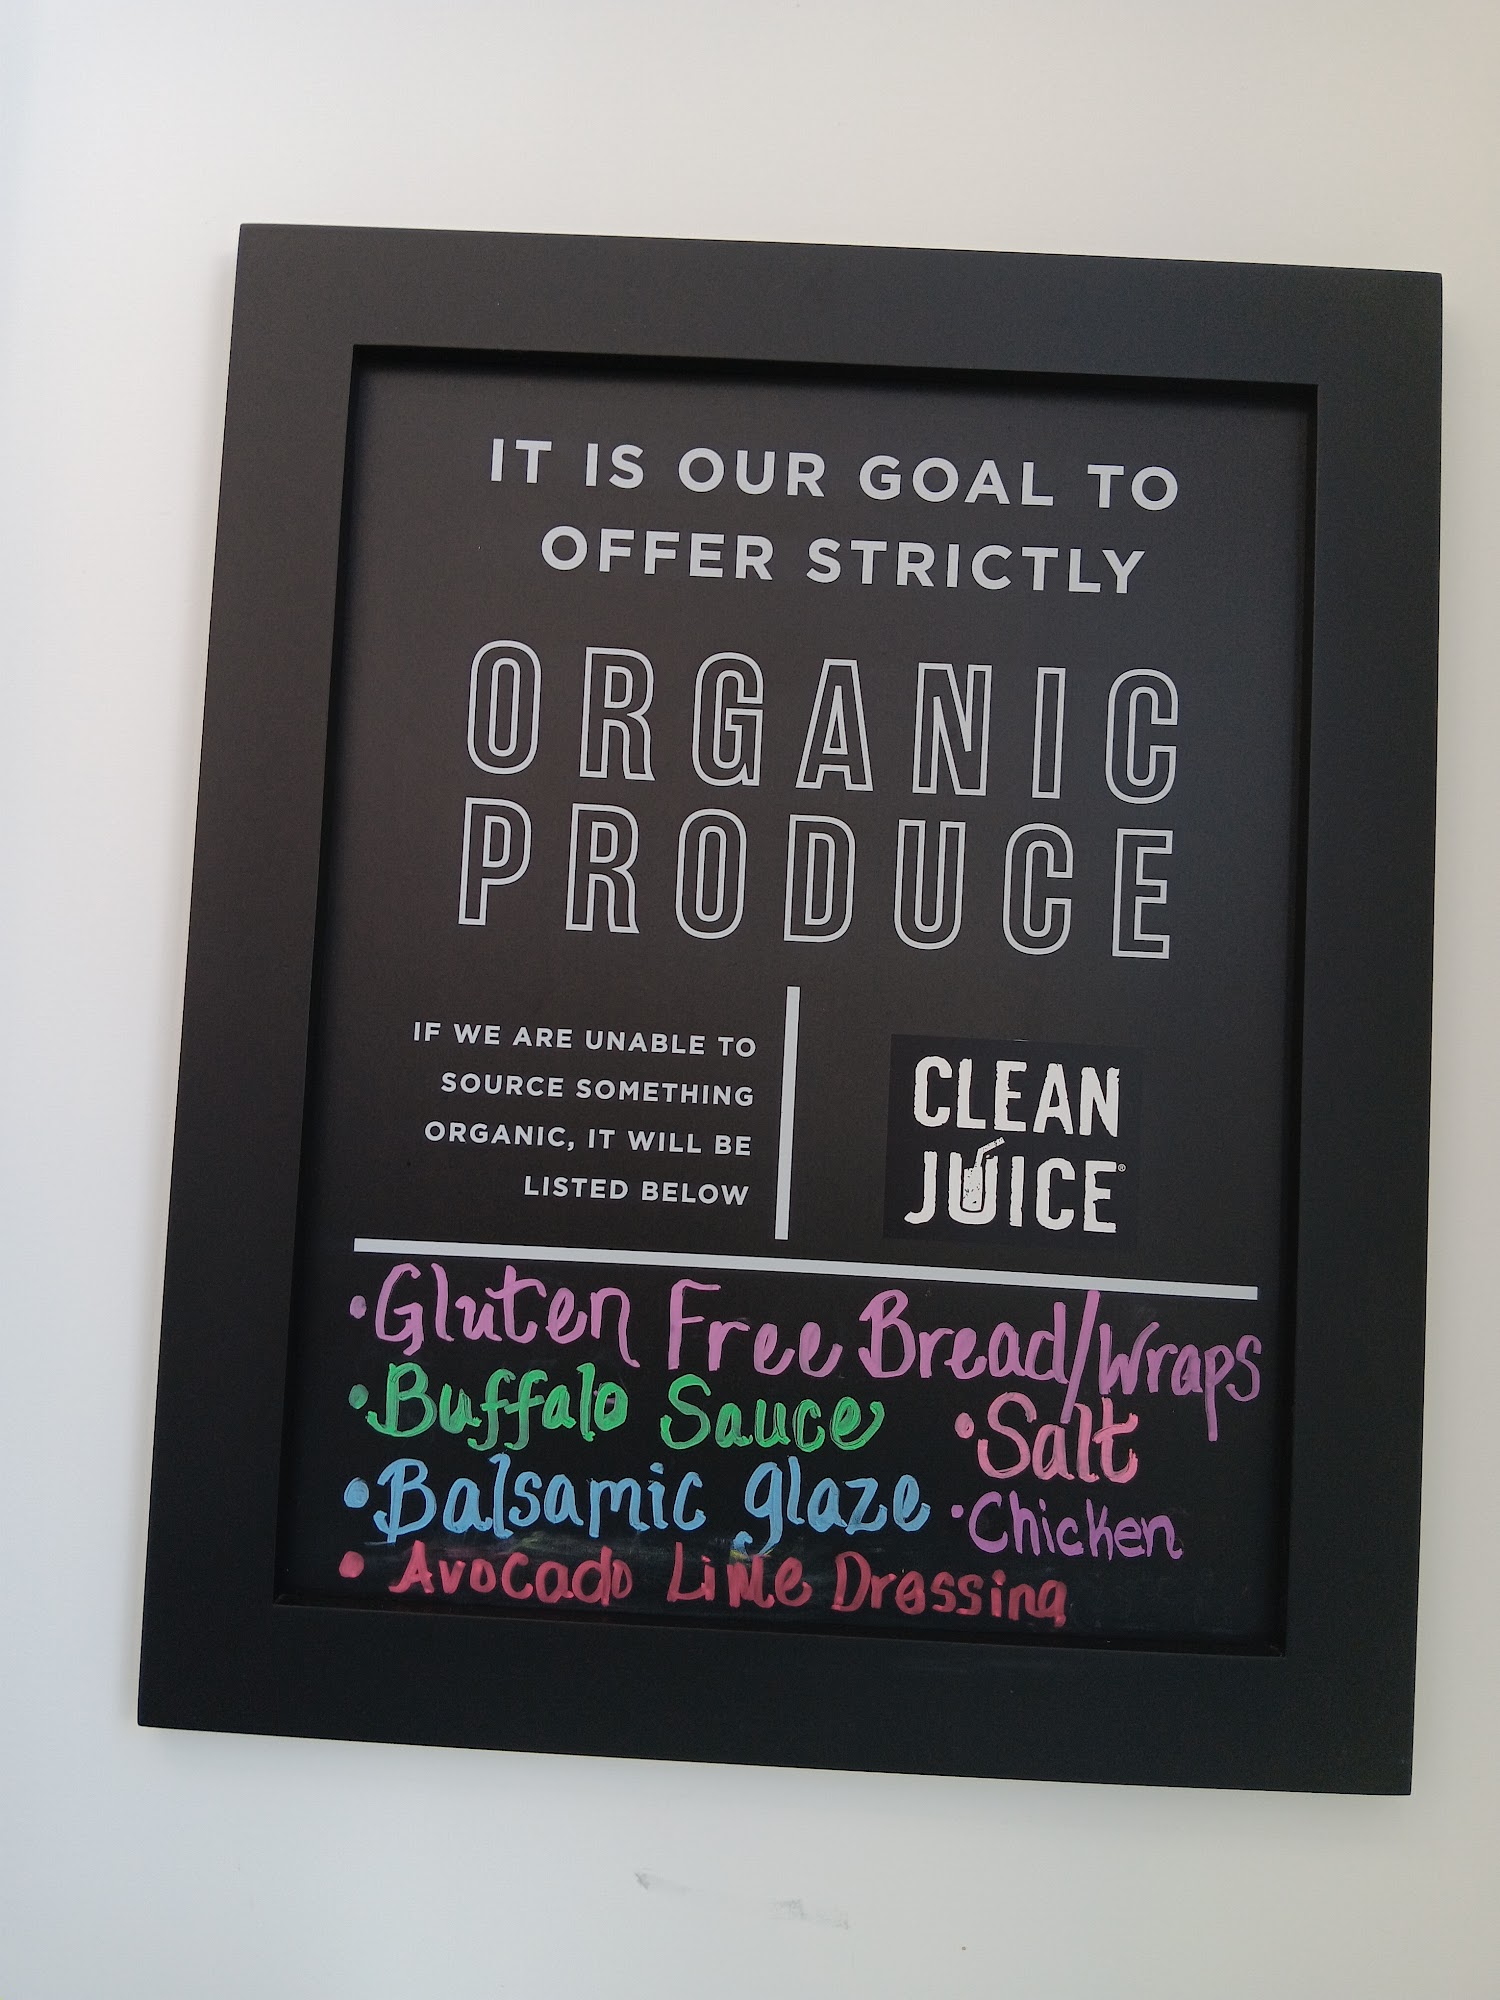 IT IS OUR GOAL TO
OFFER STRICTLY
ORGANIC
PRODUCE
IF WE ARE UNABLE TO
SOURCE SOMETHING
ORGANIC, IT WILL BE
LISTED BELOW
CLEAN
JUICE®
•Gluten Free Bread/Wraps
•Buffalo Sauce
•Salt
•Balsamic glaze
•Chicken
• Avocado Lime Dressing